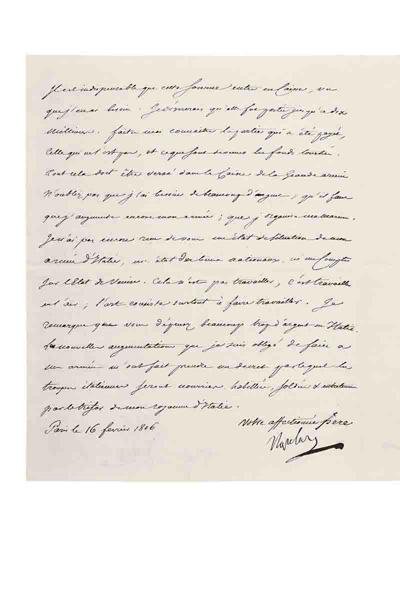 Il est indispensable que cette somme entre en Caisse, vu
que j'en ai besoin. Je désirerais qu'elle fut portée jusqu'à dix
millions. faites moi connaitre la partie qui a été payée,
celle qui ne l'est pas, et ce que sont devenus les fonds
Tout cela doit être versé dans la Caisse de la Grande armée
N'oubliez pas que j'ai besoin de beaucoup d'argent; qu'il faut
que j'augmente encore mon armée; que j'organise ma marine.
Je n'ai pas encore reçu de vous un état de situation de mon
armée d'Italie, ni état des biens nationaux, ni un Compte
sur l'Etat de Venise. Cela n'est pas travailler, c'est travaillé
; l'art consiste surtout à faire travailler. Je
remarque que vous dépensez beaucoup trop d'argent en Italie.
Les nouvelles augmentations que je suis obligé de faire à
mon armée m'ont fait prendre un décret par lequel les
troupes italiennes seront nourries, habillées, soldées &
par le trésor de mon royaume d'Italie.
Paris le 16 fevrier 1806
Votre affectionné Père